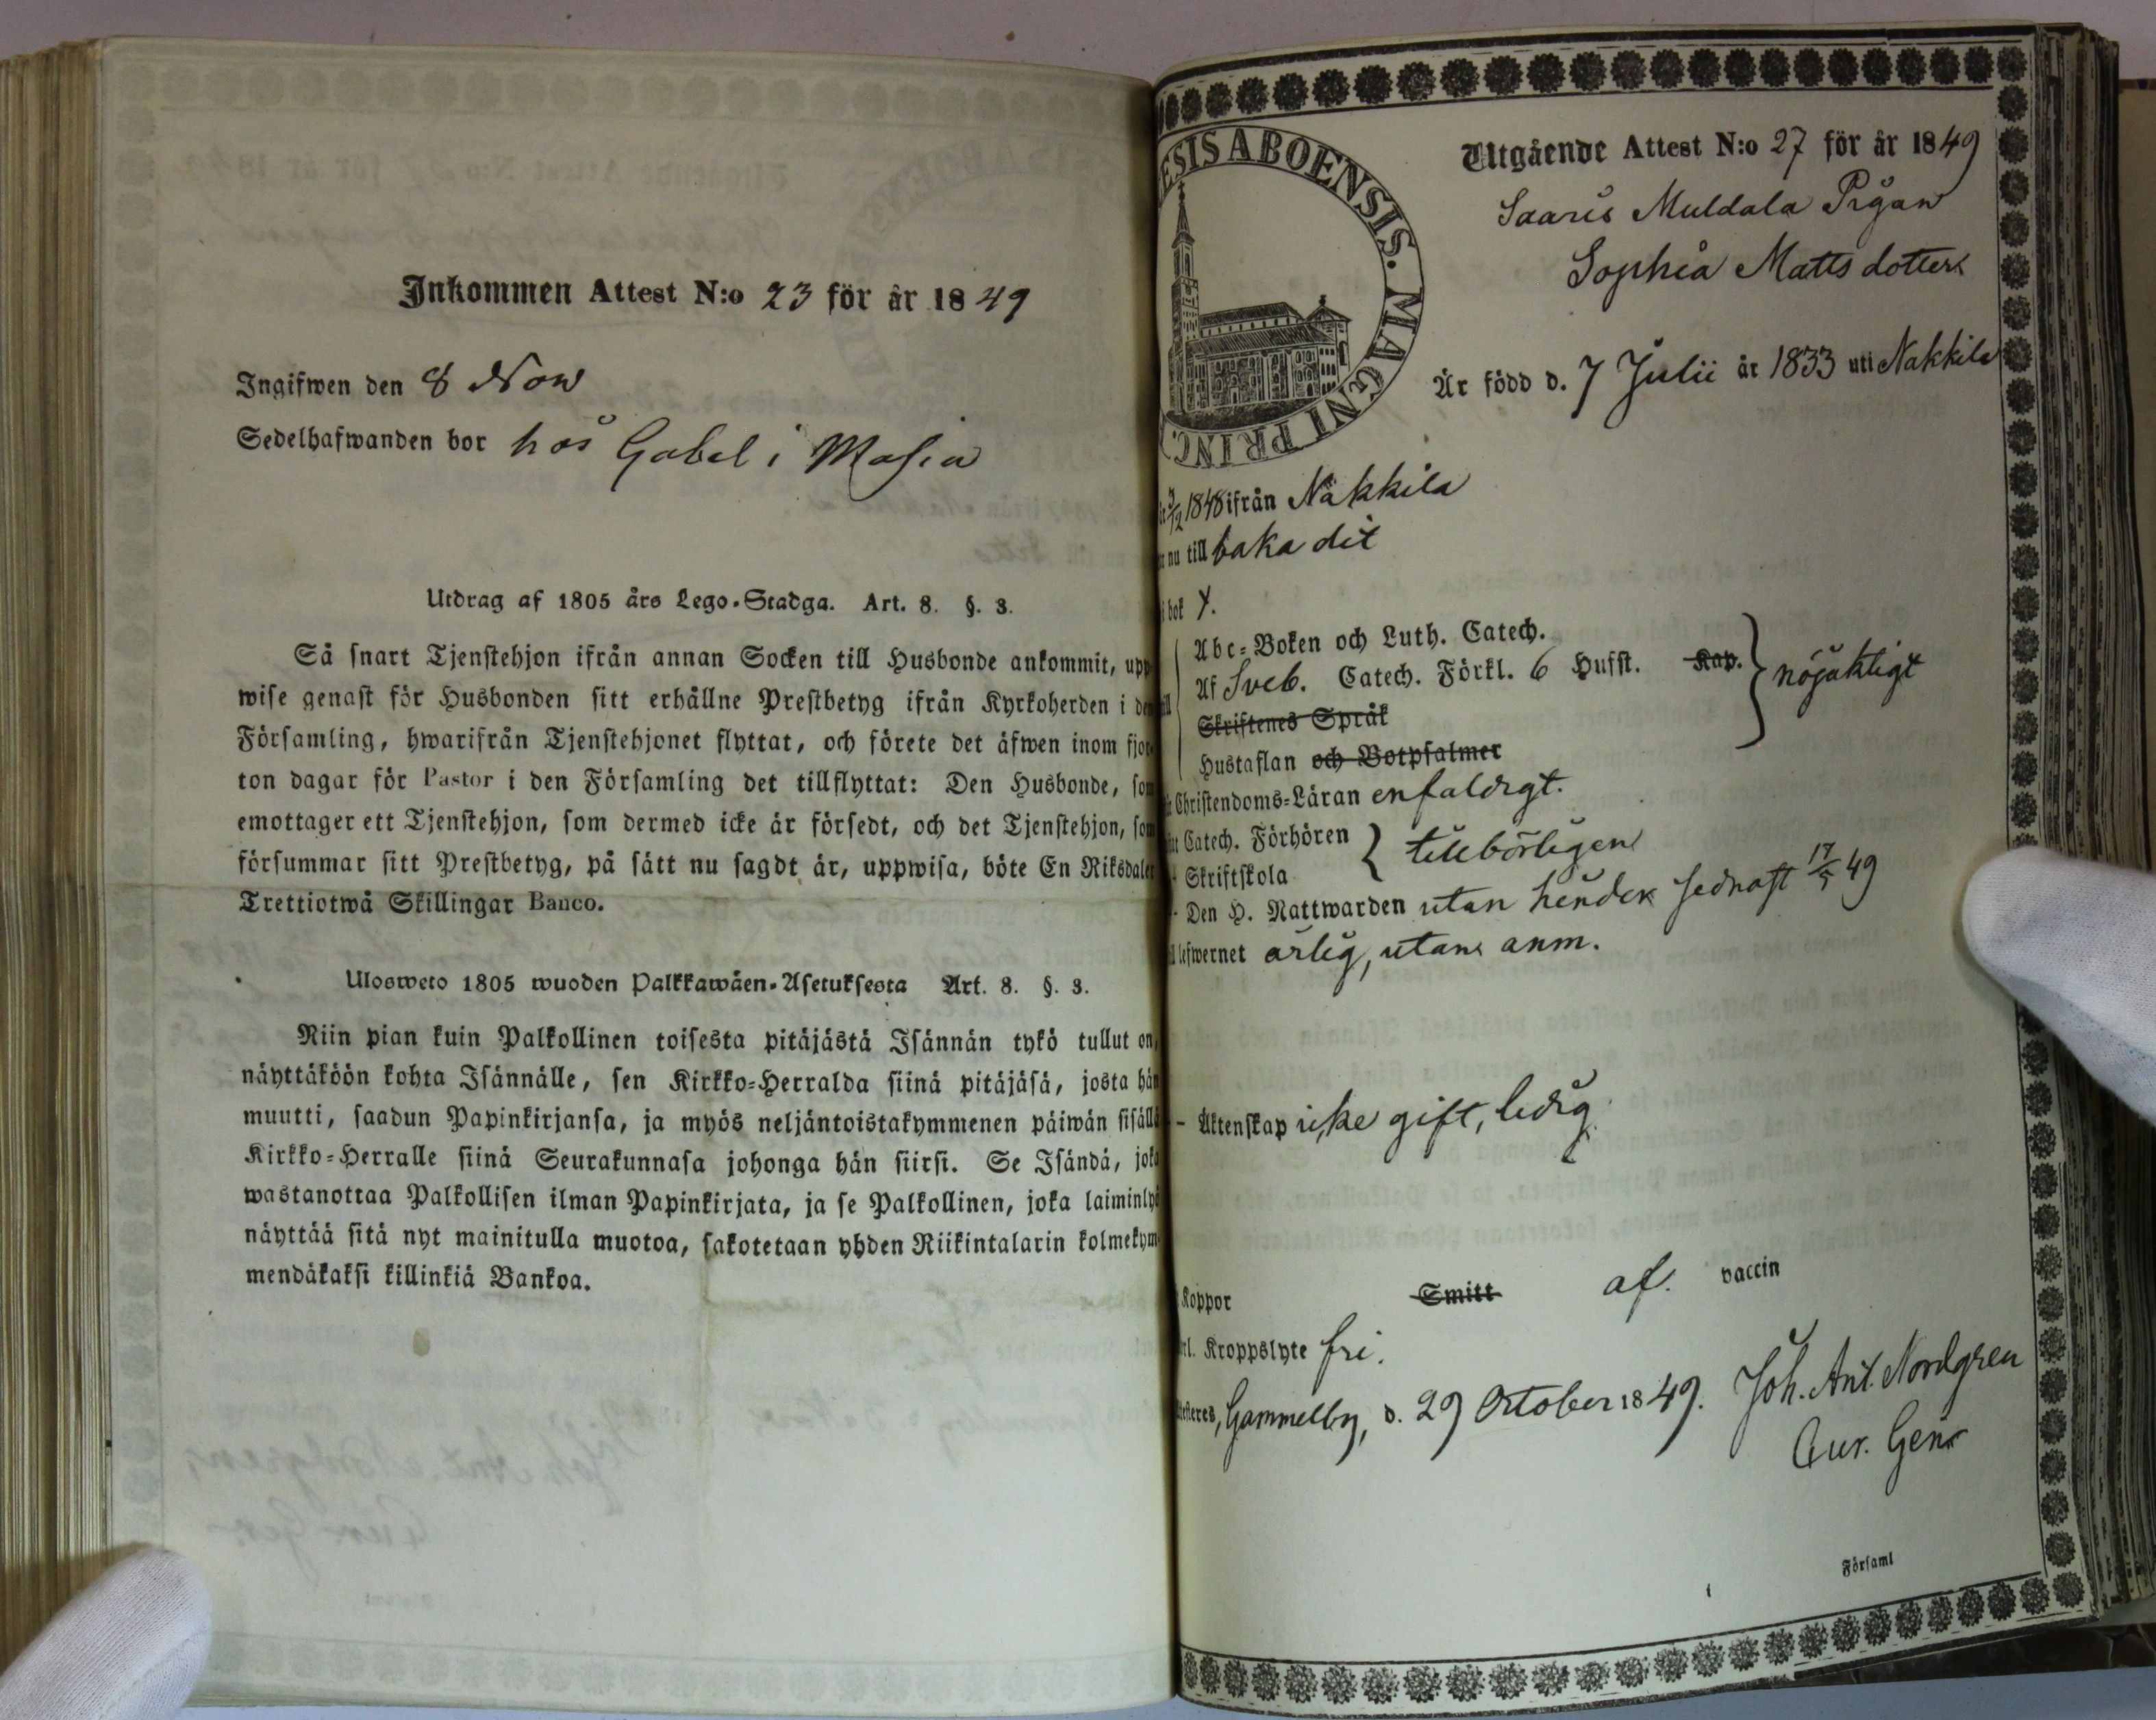 Inkommen Attest N:o 23 för år 1849
Ingifwen den 8 Nov
Sedelhafwanden bor hos Gabel i Masia
Utdrag af 1805 års Lego-Stadga. Art. 8. §. 3.
Så snart Tjenstehjon ifrån annan Socken till Husbonde ankommit, upp
wise genast för Husbonden sitt erhållne Prestbetyg ifrån Kyrkoherden i den
Församling, hwarifrån Tjenstehjonet flyttat, och förete det äfwen inom fjor-
ton dagar för Pastor i den Församling det tillflyttat: Den Husbonde, som
emottager ett Tjenstehjon, som dermed icke är försedt, och det Tjenstehjon, som
försummar sitt Prestbetyg, på sätt nu sagdt är, uppwisa, böte En Riksdaler
Trettiotwå Skillingar Banco.
Ulosweto 1805 wuoden Palkkawäen-Asetuksesta Art. 8. §. 3.
Niin pian kuin Palkollinen toisesta pitäjästä Isännän tykö tullut on,
näyttäköön kohta Isännälle, sen Kirkko-Herralda siinä pitäjäsä, josta hän
muutti, saadun Papinkirjansa, ja myös neljäntoistakymmenen päiwän sisällä
Kirkko-Herralle siinä Seurakunnasa johonga hän siirsi. Se Isändä, joka
wastanottaa Palkollisen ilman Papinkirjata, ja se Palkollinen, joka laiminlyö
näyttää sitä nyt mainitulla muotoa, sakotetaan yhden Riikintalarin kolmekym-
mendäkaksi killinkiä Bankoa.
ESIS ABOENSIS. MAGNI PRINC.
Utgående Attest N:o 27 för år 1849
Saaris Muldala Pigan
Sophia Matts dotter
Är född d. 7 Julii år 1833 uti Nakkila
1848 ifrån Nakkila
nu till baka dit
i bok 4.
Abc-Boken och Luth. Catech.
Af Sveb. Catech. Förkl. 6 Hufst. Kap. } nöjaktigt
Skriftenes Språk
Hustaflan och Botpsalmer
Christendoms-Läran enfaldigt.
Catech. Förhören } tillbörligen
Skriftskola
Den H. Nattwarden utan hinder sednast 17/5 49
lefwernet ärlig, utan anm.
- Äktenskap icke gift, ledig
Koppor Smitt af. vaccin
Kroppslyte fri.
Gammelby, d. 29 October 1849. Joh. Ant. Nordgren
Cur. Gens
Församl